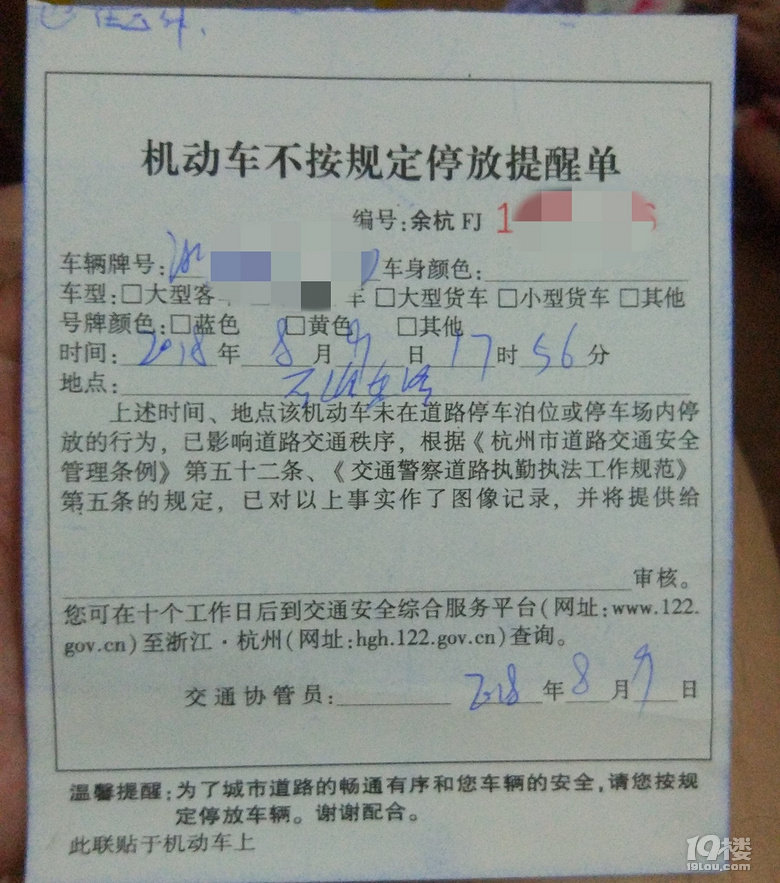 机动车不按规定停放提醒单
编号:余杭 FJ 1 6
车辆牌号:浙 车身颜色:
车型:□大型客 车 □大型货车 □小型货车 □其他
号牌颜色:□蓝色 □黄色 □其他
时间: 2018 年 8 月 9 日 17 时 56 分
地点:
上述时间、地点该机动车未在道路停车泊位或停车场内停
放的行为，已影响道路交通秩序，根据《杭州市道路交通安全
管理条例》第五十二条、《交通警察道路执勤执法工作规范》
第五条的规定，已对以上事实作了图像记录，并将提供给
审核。
您可在十个工作日后到交通安全综合服务平台(网址:www.122.
gov.cn)至浙江·杭州(网址:hgh.122.gov.cn)查询。
交通协管员: 2018 年 8 月 9 日
温馨提醒:为了城市道路的畅通有序和您车辆的安全,请您按规
定停放车辆。谢谢配合。
此联贴于机动车上
19楼
19lou.com